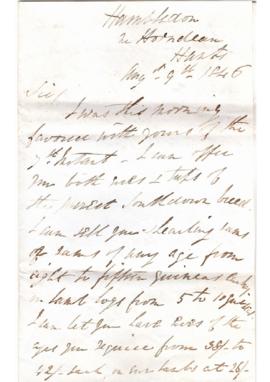 Hambledon
Nr Horndean
Hants
Augt 9th 1846
Sir
I was this morning
favored with yours of the
7th Instant. I can offer
you both ewes & tups of
the purest Southdown breed.
I can sell you shearling rams
or rams of any age from
eight to fifteen guineas each
or lamb togs from 5 to 10 guineas
I can let you have Ewes of the
age you require from 38/- to
42/- each, or ewe lambs at 28/-